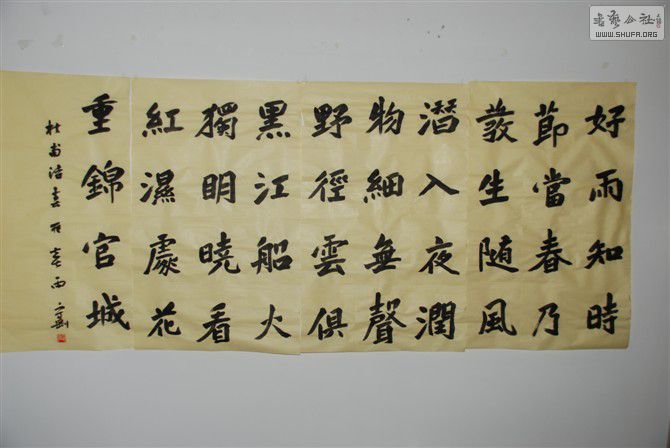 好雨知時
節當春乃
發生随風
潛入夜潤
物細無聲
野徑雲俱
黑江船火
獨明曉看
紅濕處花
重錦官城
杜甫诗春夜喜雨
書藝公社
WWW.SHUFA.ORG